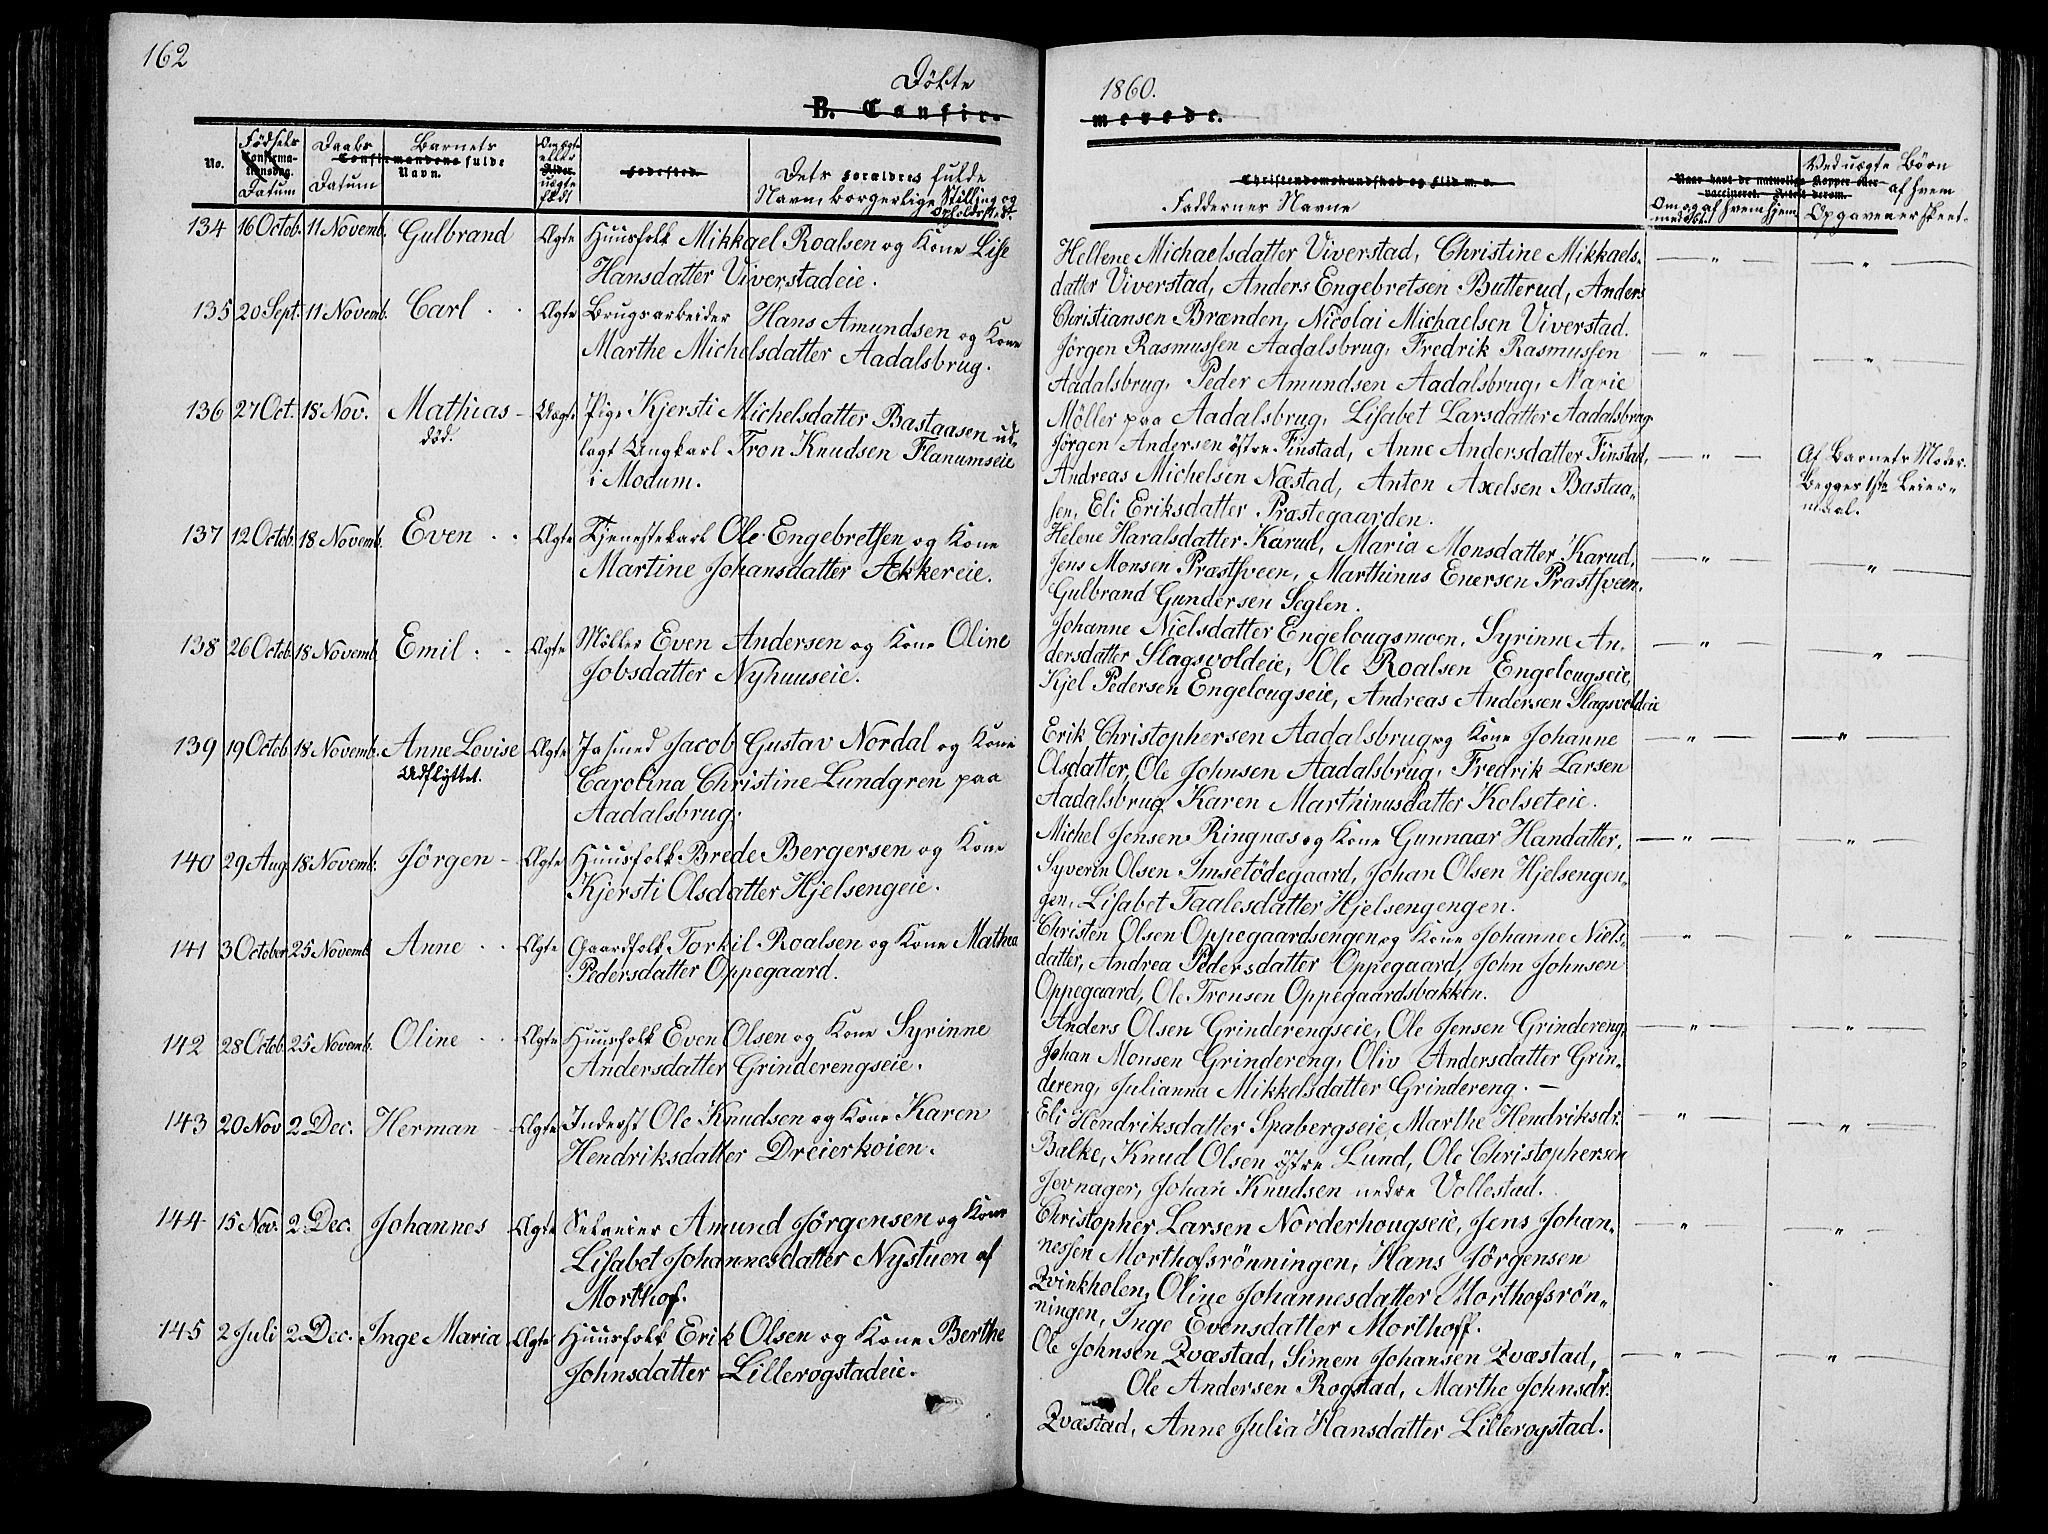 162
Døbte
1860.
B. Confir-
merede.
No.
Fødsels
Confirma-
tionsdag.
Datum
Daabs
Datum
Barnets
Confirmandens fulde
Navn.
Om ægte
eller
Alder
uægte
født
Fødested.
Dets Forældres fulde
Navn, borgerlige Stilling og
Opholdssted.
Christendomskundskab og Flid m. v.
Faddernes Navne
Naar havt de naturlige Kopper eller
vaccineret. Attest derom.
Om og af hvem hjem-
med Dbt.
Ved uægte Børn
af hvem
Opgaven er skeet.
134 16 Octob. 11 Novemb. Gulbrand Ægte Huusfolk Mikkael Roalsen og Kone Lise
Hansdatter Viverstadeie.
Hellene Michaelsdatter Viverstad, Christine Mikkaels-
datter Viverstad, Anders Engebretsen Butterud, Anders
Christiansen Brænden, Nicolai Michaelsen Viverstad.
135 20 Sept. 11 Novemb. Carl Ægte Brugsarbeider Hans Amundsen og Kone
Marthe Michelsdatter Aadalsbrug.
Jørgen Rasmussen Aadalsbrug, Fredrik Rasmussen
Aadalsbrug, Peder Amundsen Aadalsbrug, Marie
Møller paa Aadalsbrug, Lisabet Larsdatter Aadalsbrug
136 27 Oct. 18 Nov. Mathias Uægte Pige Kjersti Michelsdatter Bastaasen ud-
død.
lagt Ungkarl Tron Knudsen Flanumseie
i Modum.
Jørgen Andersen østre Finstad, Anne Andersdatter Finstad,
Andreas Michelsen Næstad, Anton Axelsen Bastaa-
sen, Eli Eriksdatter Præstegaarden.
Af Barnets Moder.
Begges 1ste Leier-
maal.
137 12 Octob. 18 Novemb. Even Ægte Tjenestekarl Ole Engebretsen og Kone
Martine Johansdatter Akkereie.
Helene Haralsdatter Karud, Maria Monsdatter Karud,
Jens Monsen Præstsveen, Marthinus Enersen Præstsveen.
Gulbrand Gundersen Seglen.
138 26 Octob. 18 Novemb. Emil Ægte Møller Even Andersen og Kone Oline
Jobsdatter Nyhuuseie.
Johanne Nielsdatter Engelougsmoen, Syrinne An-
dersdatter Slagsvoldeie, Ole Roalsen Engelougseie,
Kjel Pedersen Engelougseie, Andreas Andersen Slagsvoldeie
139 19 Octob. 18 Novemb. Anne Lovise Ægte Jacob Gustav Nordal og Kone
Udflyttet.
Carolina Christine Lundgren paa
Aadalsbrug.
Erik Christophersen Aadalsbrug og Kone Johanne
Olsdatter, Ole Johnsen Aadalsbrug, Fredrik Larsen
Aadalsbrug Karen Marthinusdatter Kolseteie.
140 29 Aug. 18 Novemb. Jørgen Ægte Huusfolk Brede Bergersen og Kone
Kjersti Olsdatter Hjelsengeie.
Michel Jensen Ringnæs og Kone Gunnaar Handatter,
Syverin Olsen Imsetødegaard, Johan Olsen Hjelsengen-
gen, Lisabet Taalesdatter Hjelsengengen.
141 3 October 25 Novemb. Anne Ægte Gaardfolk Torkil Roalsen og Kone Mathea
Pedersdatter Oppegaard.
Christen Olsen Oppegaardsengen og Kone Johanne Niels-
datter, Andrea Pedersdatter Oppegaard, John Johnsen
Oppegaard, Ole Tronsen Oppegaardsbakken.
142 28 Octob. 25 Novemb. Oline Ægte Huusfolk Even Olsen og Kone Syrinne
Andersdatter Grinderengseie.
Anders Olsen Grinderengseie, Ole Jensen Grindereng
Johan Monsen Grindereng, Oliv Andersdatter Grin-
dereng, Julianna Mikkelsdatter Grindereng.
143 20 Nov 2 Dec. Herman Ægte Inderst Ole Knudsen og Kone Karen
Hendriksdatter Dreierkoien.
Eli Hendriksdatter Spabergseie, Marthe Hendriksdr.
Balke, Knud Olsen østre Lund, Ole Christophersen
Jevnager, Johan Knudsen nedre Vollestad.
144 15 Nov. 2 Dec. Johannes Ægte Selveier Amund Jørgensen og Kone
Lisabet Johannesdatter Nystuen af
Morthof.
Christopher Larsen Norderhougseie, Jens Johan-
nessen Morthofsrønningen, Hans Jørgensen
Qvinkholen, Oline Johannesdatter Morthofsrøn-
ningen, Inge Evensdatter Morthoff.
145 2 Juli 2 Dec. Inge Maria Ægte Huusfolk Erik Olsen og Kone Berthe
Johnsdatter Lillerogstadeie.
Ole Johnsen Qvæstad, Simen Johansen Qvæstad,
Ole Andersen Rogstad, Marthe Johnsdr.
Qvæstad, Anne Julia Hansdatter Lillerogstad.